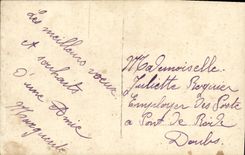 des meilleurs voeux
et souhaits
d'une Amie
Marguerite
Mademoiselle
Juliette Rognier
Employer des Poste
a Pont de Roide
Doubs